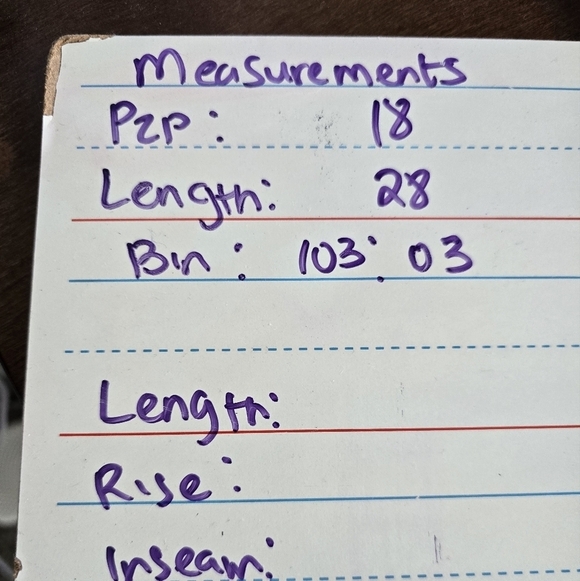 Measurements
P2P: 18
Length: 28
Bin: 103: 03
Length:
Rise:
Inseam: